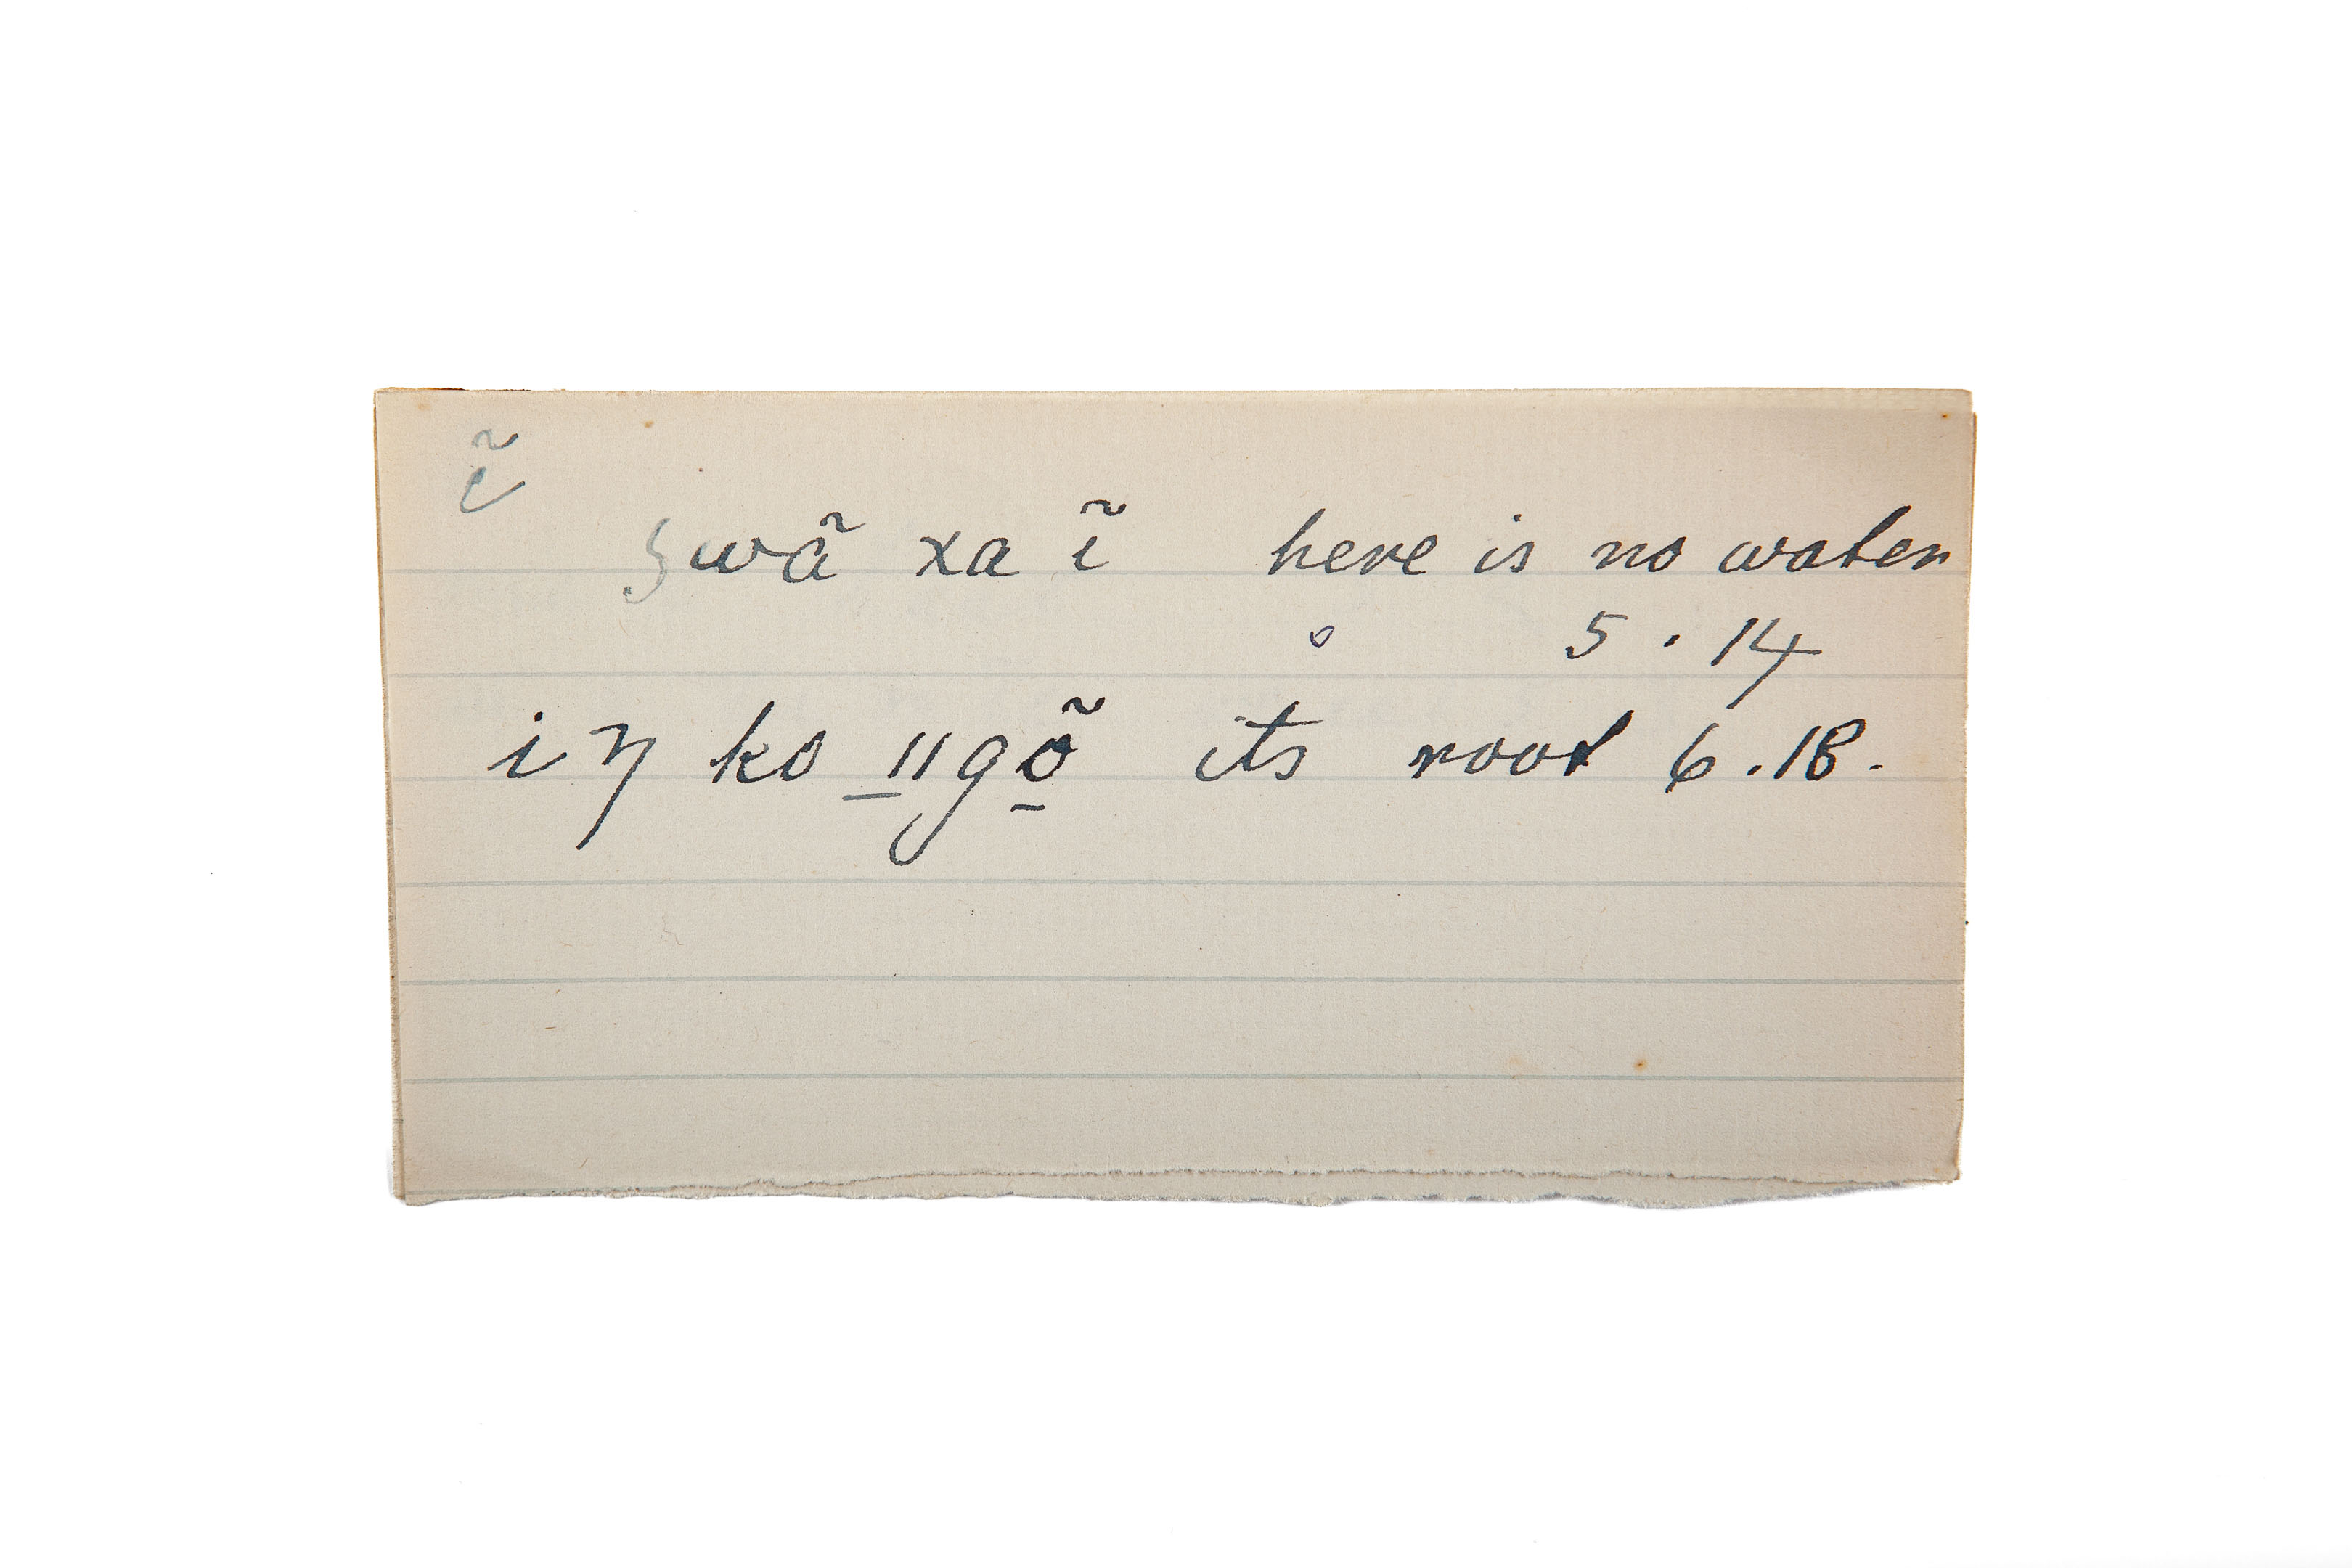 ĩ
ʒwã xa ĩ here is no water
5 . 14
iŋ ko _ǁgõ̱ its root 6.18.